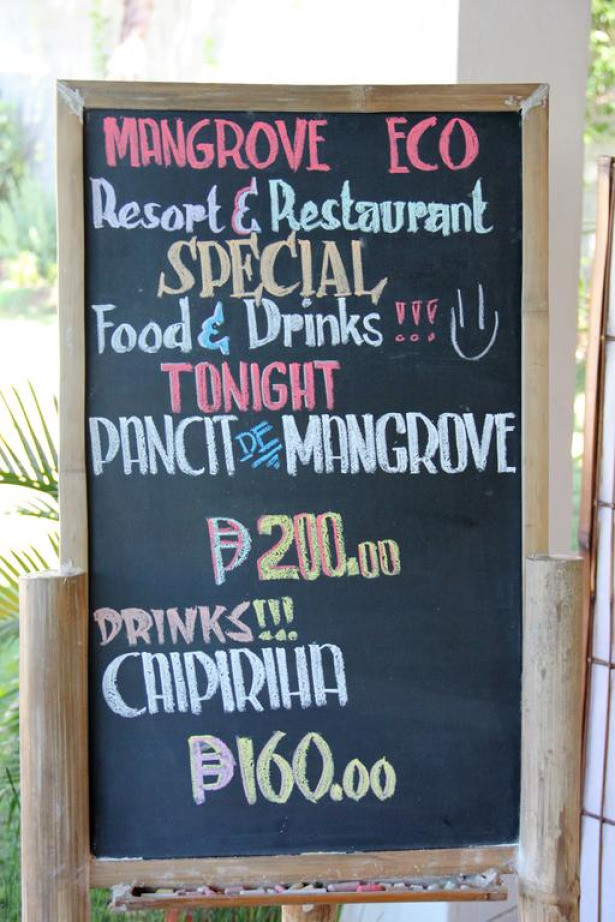 MANGROVE ECO
Resort & Restaurant
SPECIAL
Food & Drinks !!!
TONIGHT
PANCIT DE MANGROVE
₱200.00
DRINKS!!!
CAIPIRIHA
₱160.00